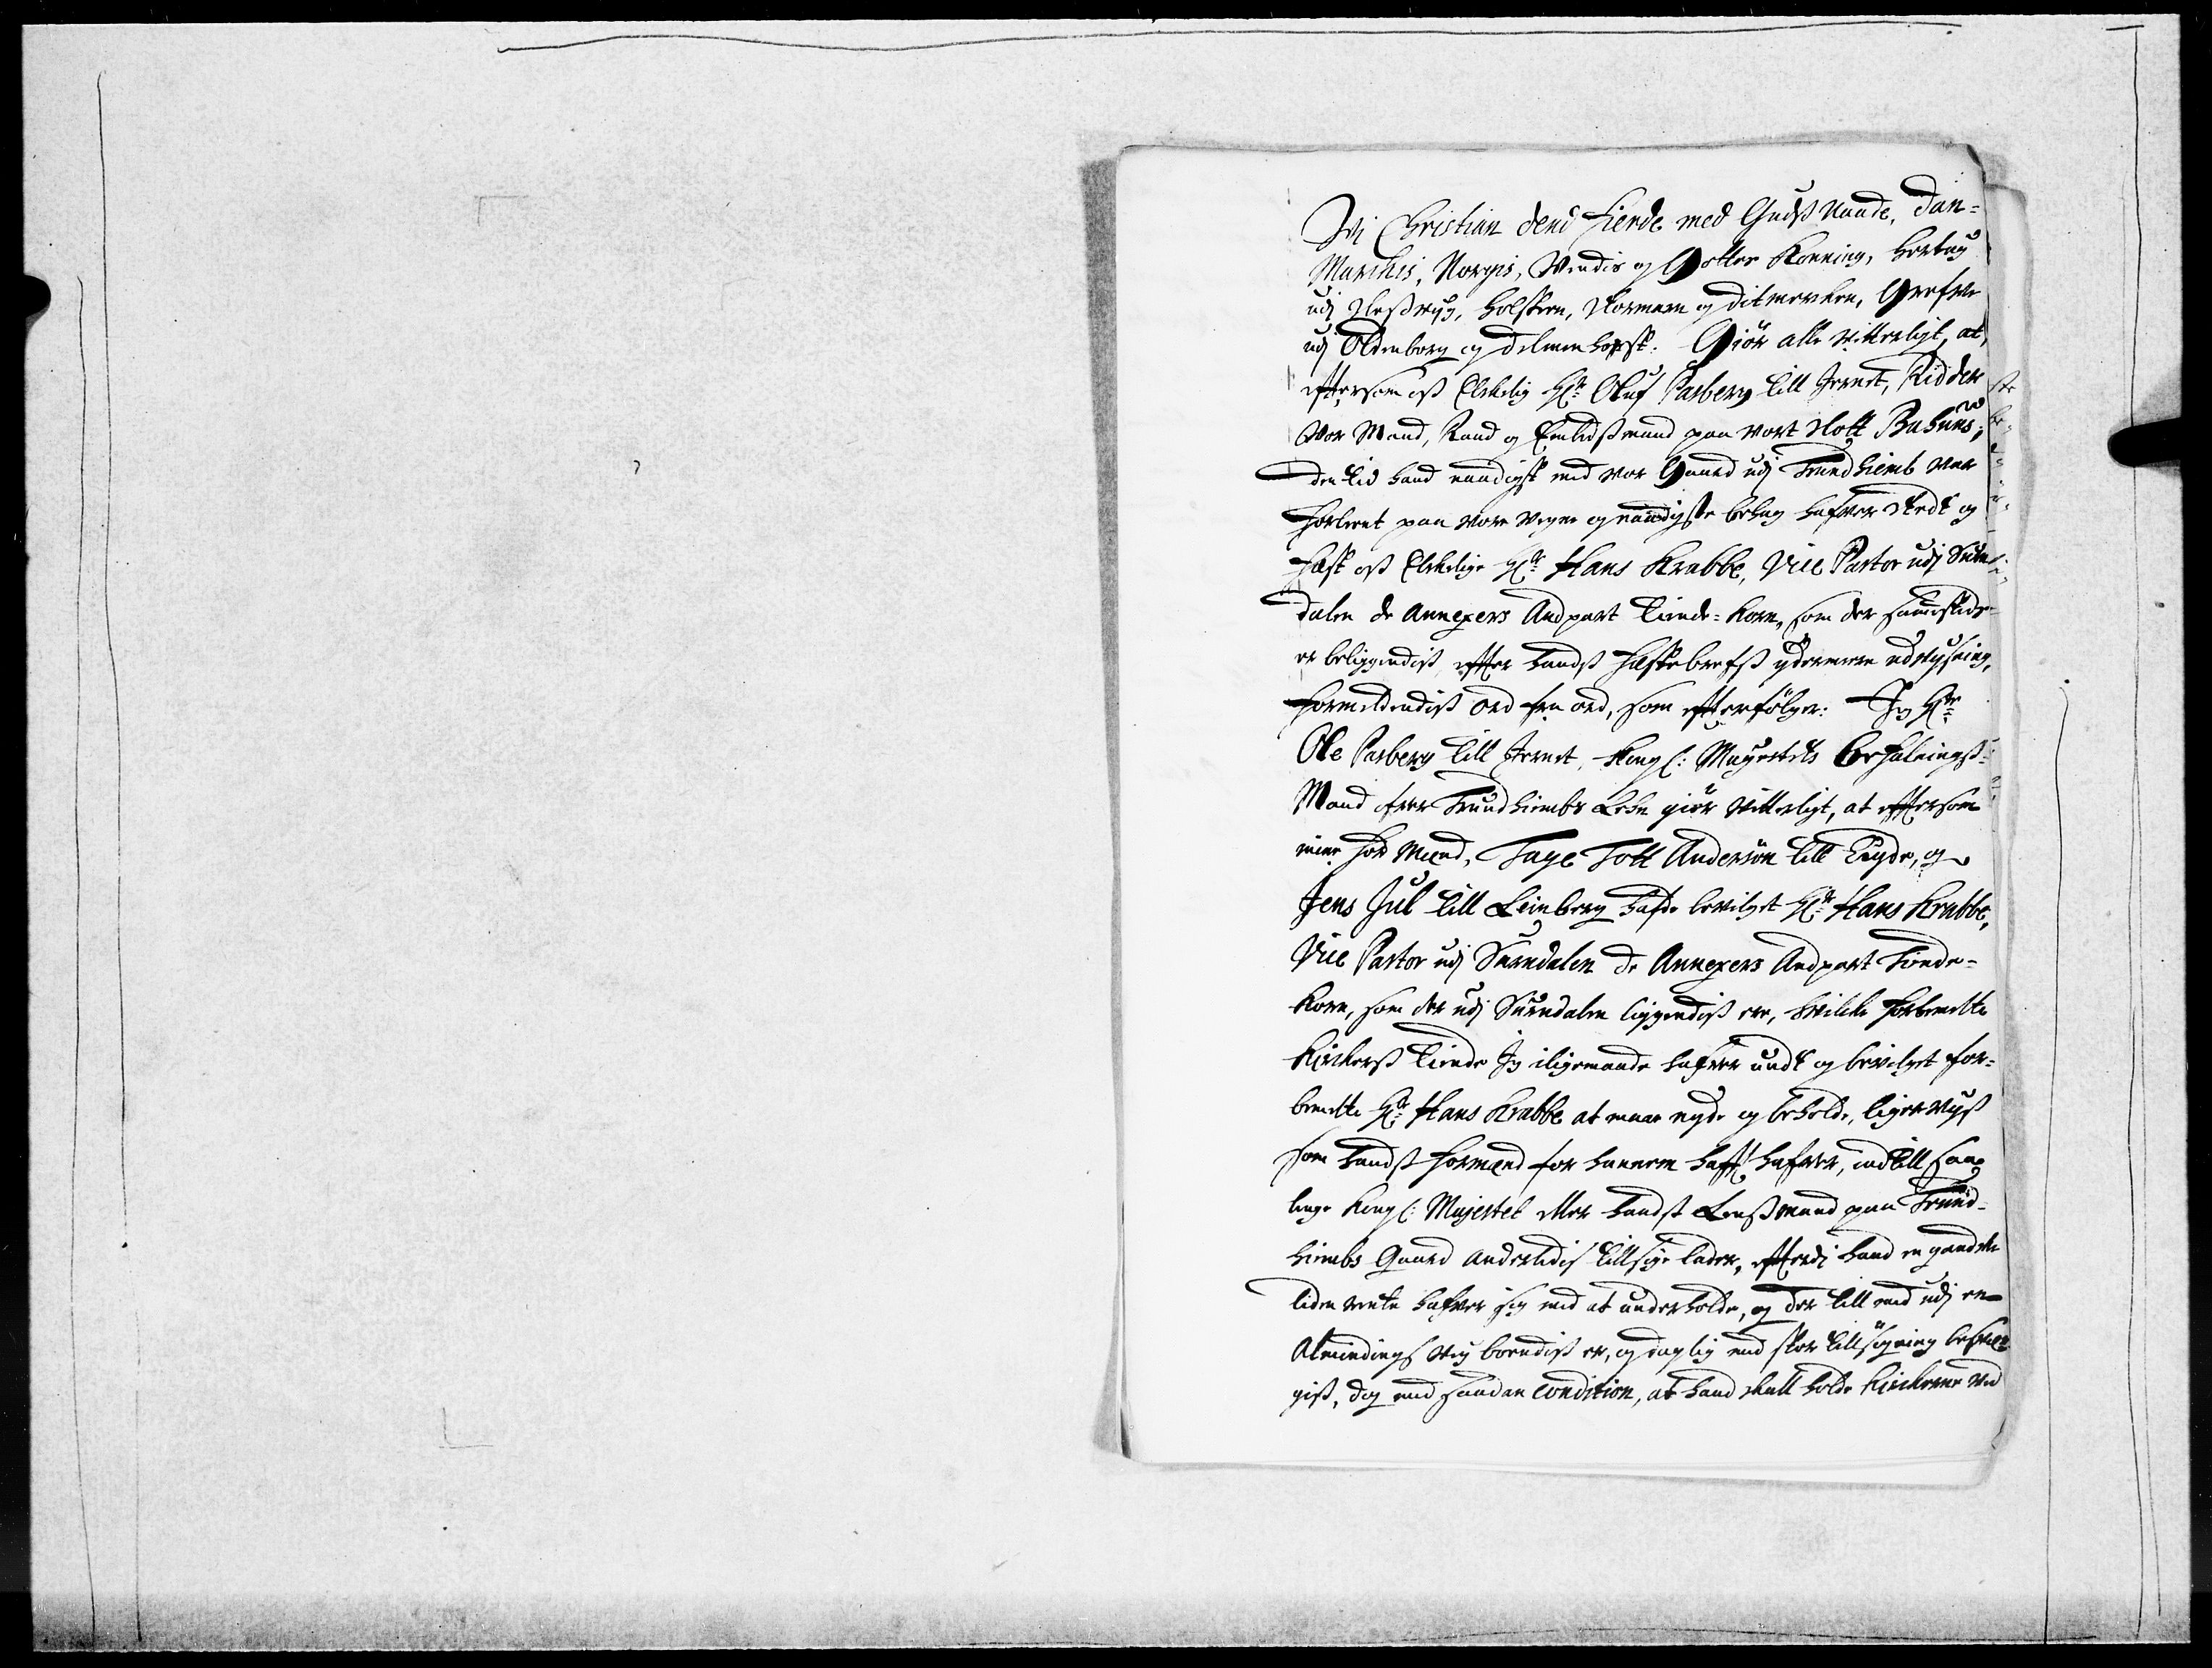 Wi Christian dend Fierde med Gudß Naade, Dan=
Marckis, Norgis, Wendis og Gottes Konning, Hertug
udj Sleßwyg, Holsteen, Stormarn og Ditmersken, Grefve
udj Oldenborg og Delmenhorst. Giör alle vitterligt, at,
eftersom oß Elskelig Hr: Oluf Parsberg till Jernet, Ridder
Vor Mand, Raad og Embidßmand paa vort Slott Bahuus,
den tid hand naadigst med vor Gaard udj Trundhiemb var
forleent paa vore vegne og naadigste behag hafver stedt og
fæst oß Elskelige Hr: Hans Krabbe, Vice Pastor udj Suren
dalen de Annexers Andpart Tiende=Korn, som der sammestedz
er beliggendiß efter handß fæstebrefß ydermere udvysning,
formeldendiß ord fra ord, som efterfölger: Jeg Hr:
Ole Parsberg till Jernet, Kongl: Mayestets Befalningß=
Mand ofver Trundhiembs Lehn giör vitterligt, at eftersom
mine for Mænd, Tage Tott Andersön till Eryde, og
Jens Jul till Keinberg hafde bevilget Hr: Hans Krabbe,
Vice Pastor udj Surndalen de Annexers Andpart Tiende=
Korn, som der udj Surndalen liggendiß ere, hvilcke forbemelte
Kirckerß Tiende Jeg iligemaade hafver undt og bevilget for=
bemelte Hr: Hans Krabbe at maae nyde og beholde, ligerviiß
som handß formænd for hannem haft hafver, indtill saa
lenge Kongl: Majestet eller handß Lenßmand paa Trund=
hiembs Gaard anderledis tillsige lader, efterdi hand en gandske
liden rente hafver sig med at underholde, og der till med udj en
Almindings vey boendiß er, og daglig med stor tillsögning besvær=
giß, dog med saadan condition, at hand skall holde Kirckerne ved